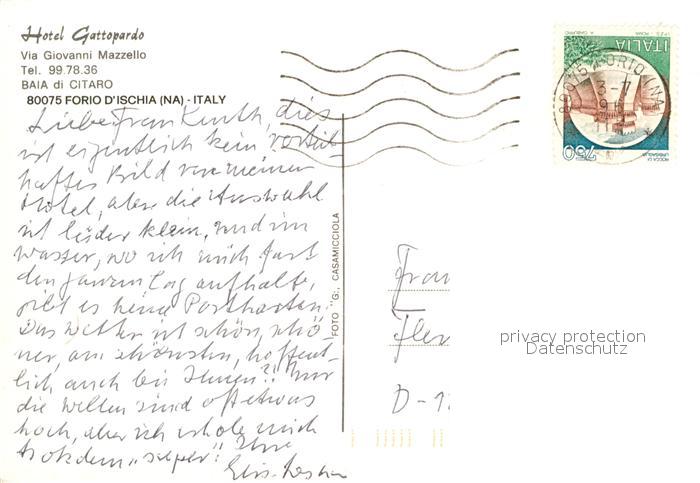 Hotel Gattopardo
Via Giovanni Mazzello
Tel. 99.78.36
BAIA di CITARO
80075 FORIO D'ISCHIA (NA) - ITALY
Liebe Frau dies
ist eigentlich kein vorteil-
haftes Bild von meinem
Hotel, aber die Auswahl
ist leider klein, und im
wasser, wo ich mich fast
den ganzen Tag aufhalte,
gibt es keine Postkarten.
Das Wetter ist schön, schö-
ner, am schönsten, hoffent-
lich auch bei Ihnen?! Nur
die Wellen sind oft etwas
hoch, aber ich erhole mich
trotzdem "super"! Ihre
FOTO "G", CASAMICCIOLA
ITALIA
750
ROCCA DI URBISAGLIA
80075 FORIO (NA)
Frau
D-1
privacy protection
Datenschutz